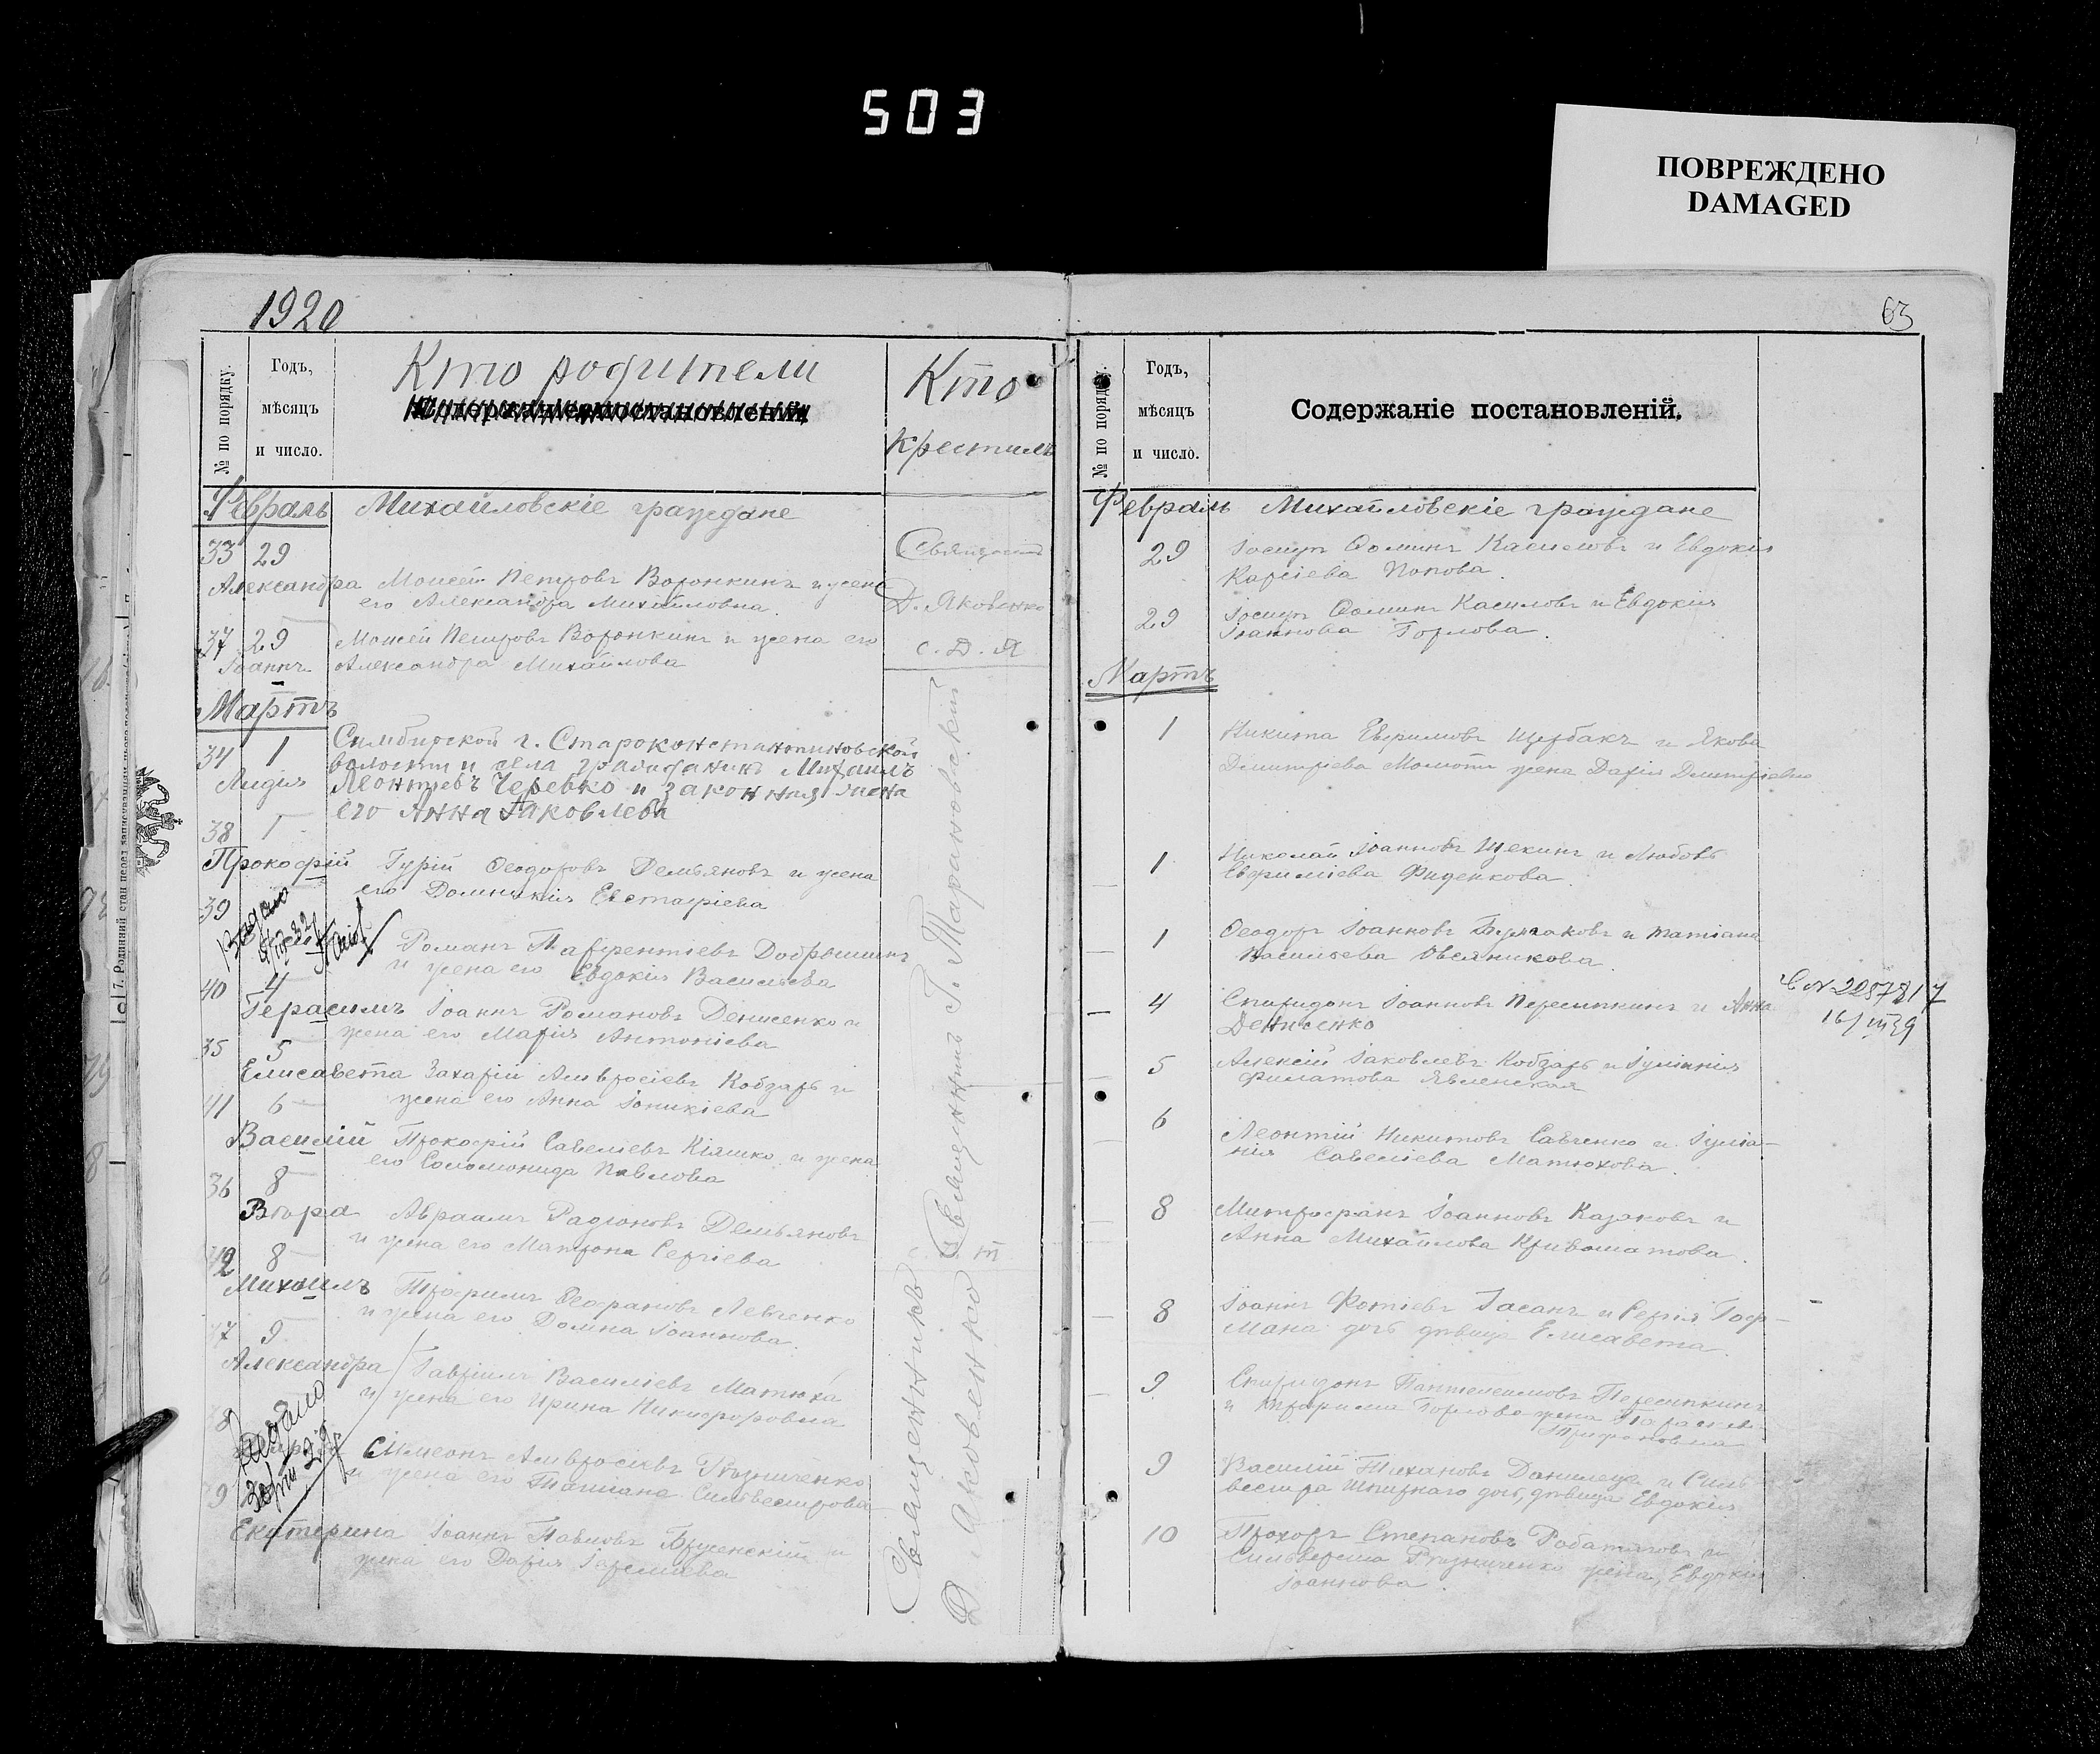 503
ПОВРЕЖДЕНО
DAMAGED
1920
№ по порядку.
Годъ,
мѣсяцъ
и число.
Кто родители
Содержаніе постановленій
Кто
крестилъ
Февраль Михайловскіе граждане
33 29
Александра Моисей Петровъ Воронкинъ и жена
его Александра Михайловна.
Священникъ
Д. Яковенко
37 29 Моисей Петровъ Воронкинъ и жена его
Іоаннъ Александра Михайлова
с. Д. Я
Мартъ
34 1 Симбирской г. Староконстантиновской
волости и села гражданинъ Михаилъ
Лидія Леонтьевъ Черевко и законная жена
его Анна Яковлева
38 1
Прокофій Гурій Ѳеодоровъ Демьяновъ и жена
его Домникія Евстафіева
39
Романъ Лаврентіевъ Добрышинъ
и жена его Евдокія Васильева
40 4
Герасимъ Іоаннъ Романовъ Денисенко и
жена его Марія Антоніева
35 5
Елисавета Захарій Амвросіевъ Кобзарь и
жена его Анна Іоникіева
41 6
Василій Прокофій Савеліевъ Кіяшко и жена
его Соломонида Павлова
36 8
Авраамъ Радіоновъ Демьяновъ
и жена его Матрона Сергіева
42 8
Михаилъ Трофимъ Ѳеофановъ Левченко
и жена его Домна Іоаннова.
37 9
Александра Гавріилъ Василіевъ Матюха
и жена его Ирина Никифоровна
38
Симеонъ Амвросіевъ Резниченко
и жена его Татіана Сильвестрова
39
Екатерина Іоаннъ Павловъ и
жена его Дарія
Священникъ Г. Тарановскій
Священникъ
Д Яковенко
63
№ по порядку.
Годъ,
мѣсяцъ
и число.
Содержаніе постановленій.
Февраль Михайловскіе граждане
29 Іосифъ Ѳоминъ Касиловъ и Евдокія
Карпіева Попова.
29 Іосифъ Ѳоминъ Касиловъ и Евдокія
Іоаннова Горлова.
Мартъ
1 Никита Ефримовъ Щербакъ и Якова
Димитріева Момотъ жена Дарія Димитріевна
1 Николай Іоанновъ Щекинъ и Любовь
Ефриміева Фиденкова.
1 Ѳеодоръ Іоанновъ и Татіана
Васильева Овсяникова.
4 Спиридонъ Іоанновъ Пересипкинъ и Анна
Денисенко
С N 2257817
16/III 39
5 Алексій Іаковлевъ Кобзарь и Іуліанія
Филатова Явленская
6 Леонтій Никитовъ Савченко и Іуліа-
нія Савеліева Матюхова.
8 Митрофанъ Іоанновъ Казаковъ и
Анна Михайлова Кривошатова.
8 Іоаннъ Фотіевъ Гасанъ и Сергія Гоф-
мана дочь дѣвица Елисавета.
9 Спиридонъ Пантелеимовъ Пересипкинъ
и Трифона Горлова жена Параскева
Трифоновна
9 Василій Тихановъ Данилеца и Силь
вестра дочь, дѣвица Евдокія
10 Прохоръ Степановъ и
Сильвестра Резниченко жена, Евдокія
Іоаннова.